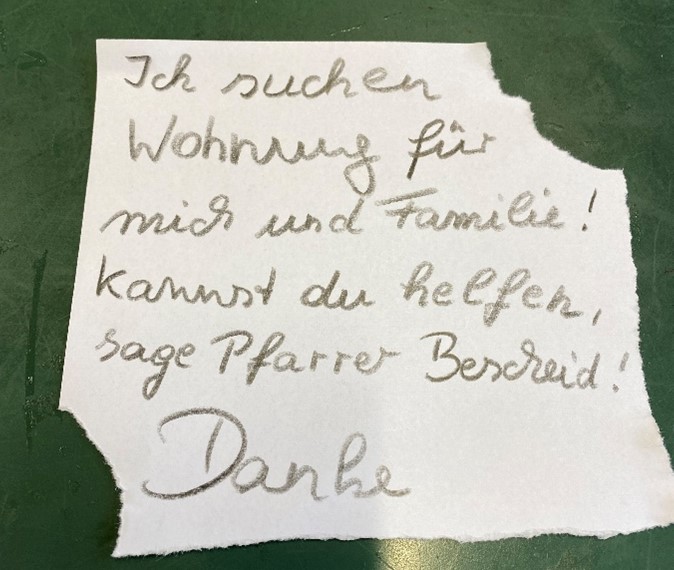 Ich suchen
Wohnung für
mich und Familie!
kannst du helfen,
sage Pfarrer Bescheid!
Danke